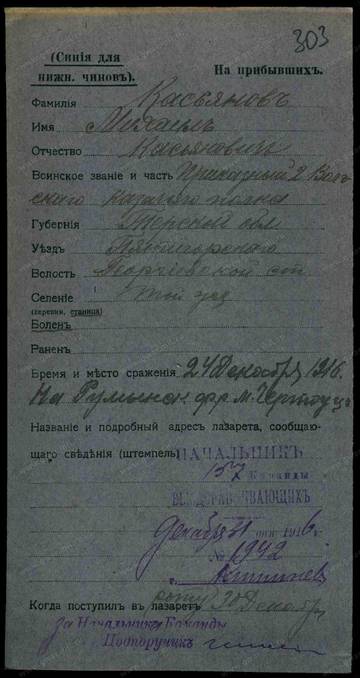 303
(Синія для
нижн. чиновъ).
На прибывшихъ.
Фамилія Касьяновъ
Имя Михаилъ
Отчество Касьяновичъ
Воинское званіе и часть Приказный 2 Волг-
скаго казачьяго полка
Губернія Терская обл
Уѣздъ Пятигорскаго
Волость Георгіевской ст
Селеніе
(деревня, станица)
Боленъ
Раненъ
Время и мѣсто сраженія 24 Декабря 1916.
На Румынск фр м.
Названіе и подробный адресъ лазарета, сообщаю-
щаго свѣдѣнія (штемпель)
НАЧАЛЬНИКЪ
157 Команды
ВЫЗДОРАВЛИВАЮЩИХЪ
Декабря 31 дня 1916 г.
№ 1942
г. Кишиневъ
Когда поступилъ въ лазаретъ 30 Декабр
За Начальника Команды
Подпоручикъ